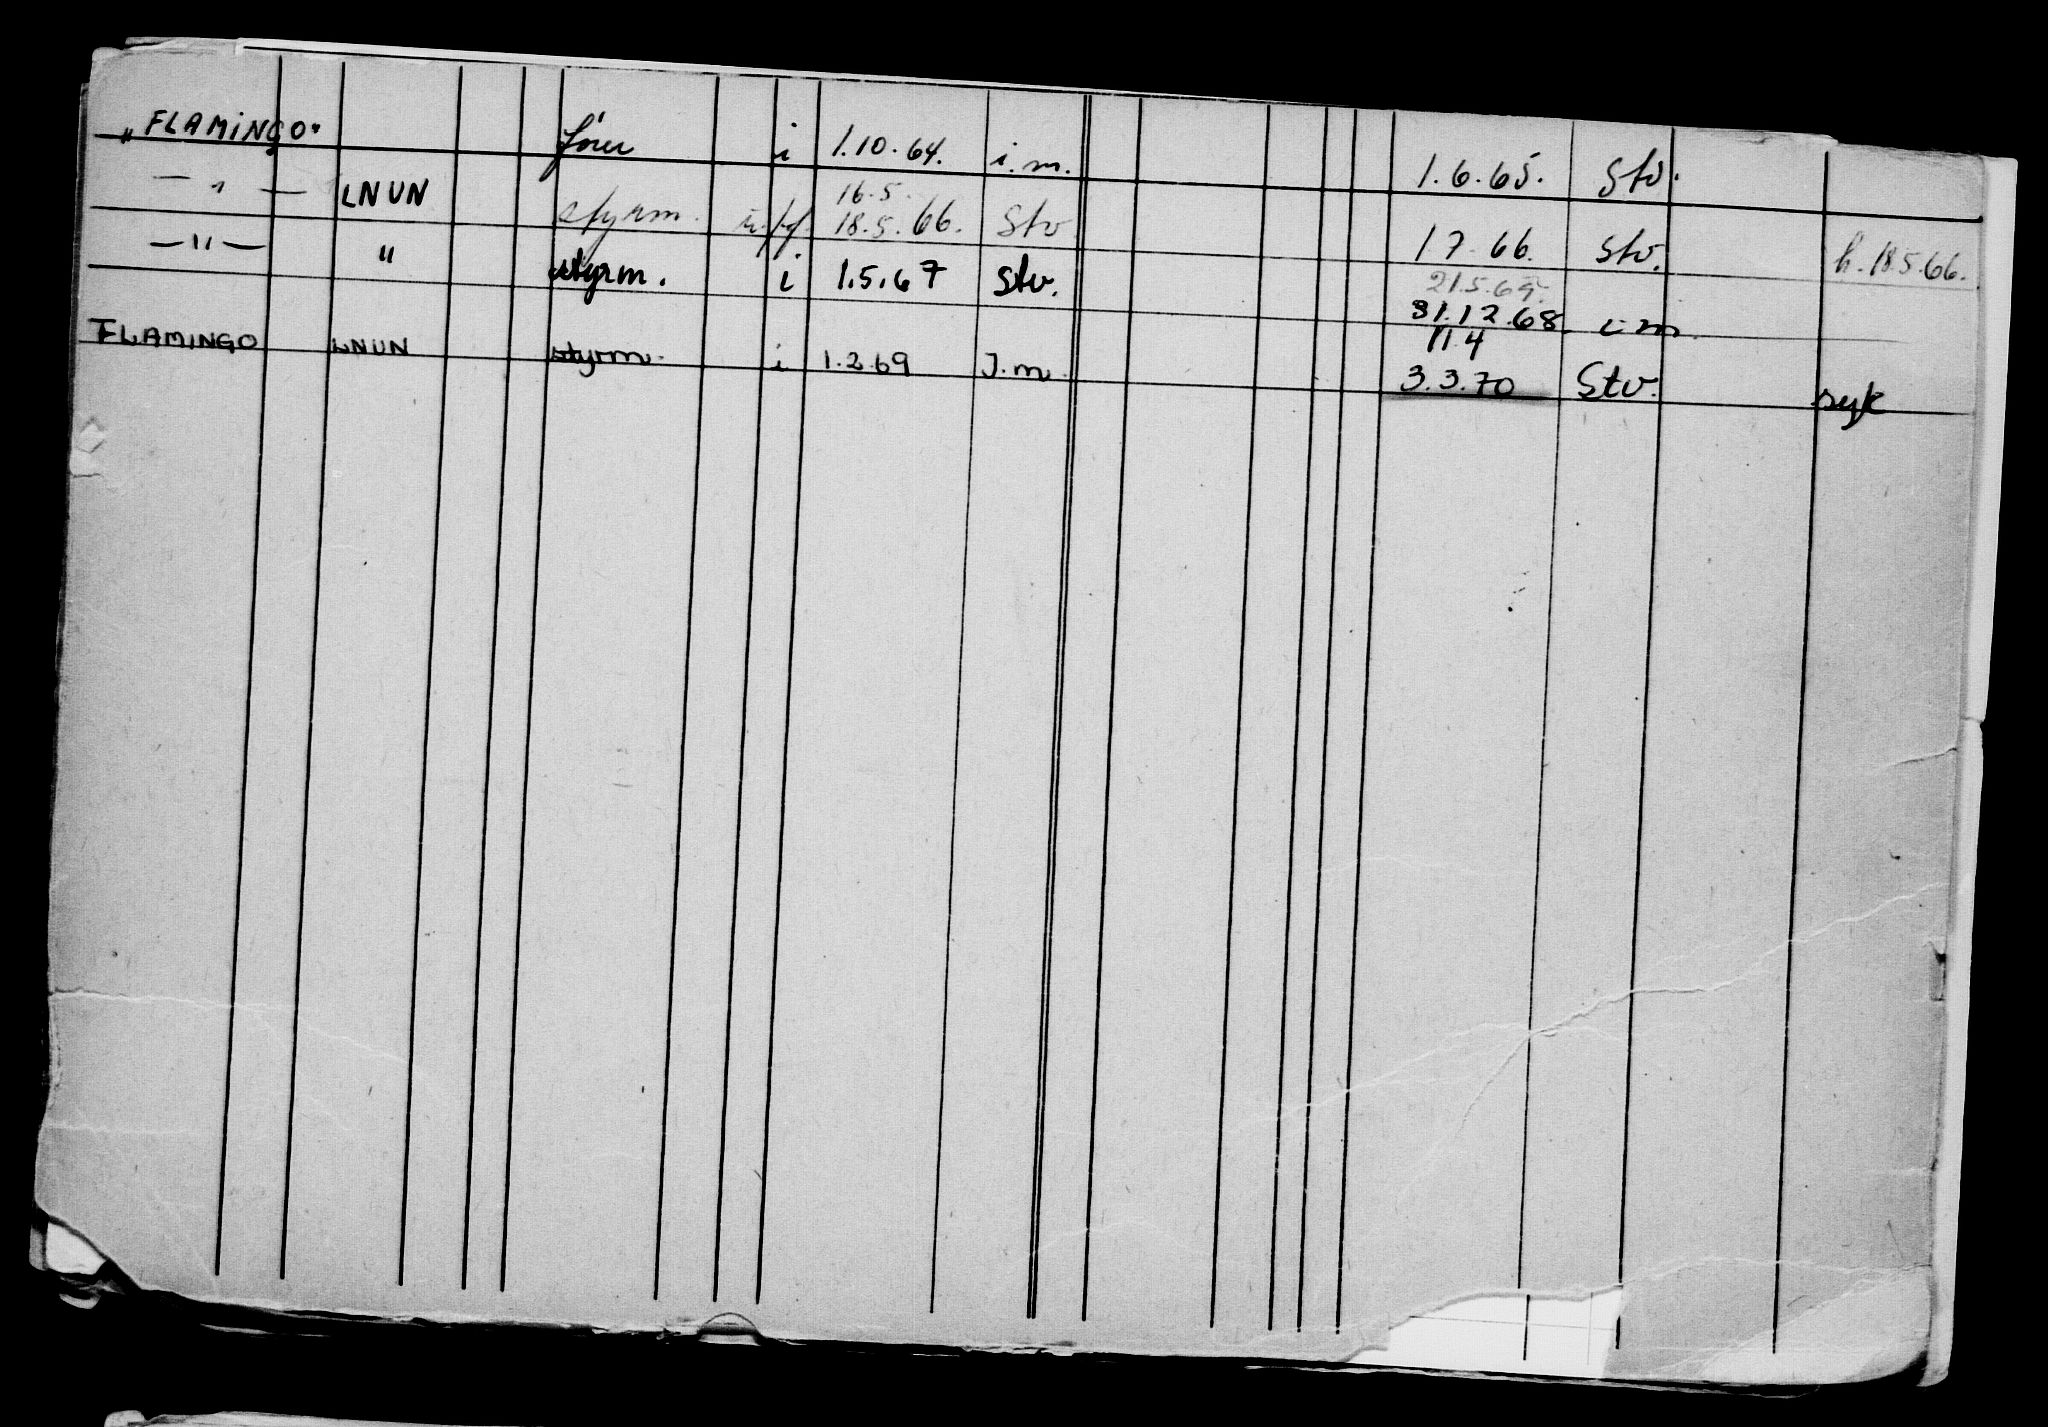 „FLAMINGO" fører i 1.10.64. i.m. 1.6.65. Stv.
— " — LNUN styrm. 16.5. 18.5.66. Stv 1.7.66. Stv. h.18.5.66.
— " — " styrm. i 1.5.67 Stv. 21.5.69. 31.12.68. i.m.
FLAMINGO LNUN styrm. i 1.2.69 I.m. 11.4 3.3.70 Stv. syk